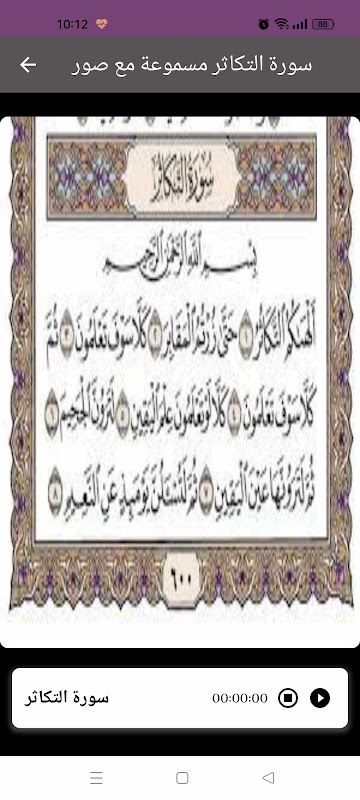 10:12
88
سورة التكاثر مسموعة مع صور
سُورَةُ التَّكَاثُرِ
بِسْمِ اللَّهِ الرَّحْمَٰنِ الرَّحِيمِ
أَلْهَاكُمُ التَّكَاثُرُ ١ حَتَّىٰ زُرْتُمُ الْمَقَابِرَ ٢ كَلَّا سَوْفَ تَعْلَمُونَ ٣ ثُمَّ
كَلَّا سَوْفَ تَعْلَمُونَ ٤ كَلَّا لَوْ تَعْلَمُونَ عِلْمَ الْيَقِينِ ٥ لَتَرَوُنَّ الْجَحِيمَ ٦
ثُمَّ لَتَرَوُنَّهَا عَيْنَ الْيَقِينِ ٧ ثُمَّ لَتُسْأَلُنَّ يَوْمَئِذٍ عَنِ النَّعِيمِ ٨
٦٠٠
سورة التكاثر
00:00:00